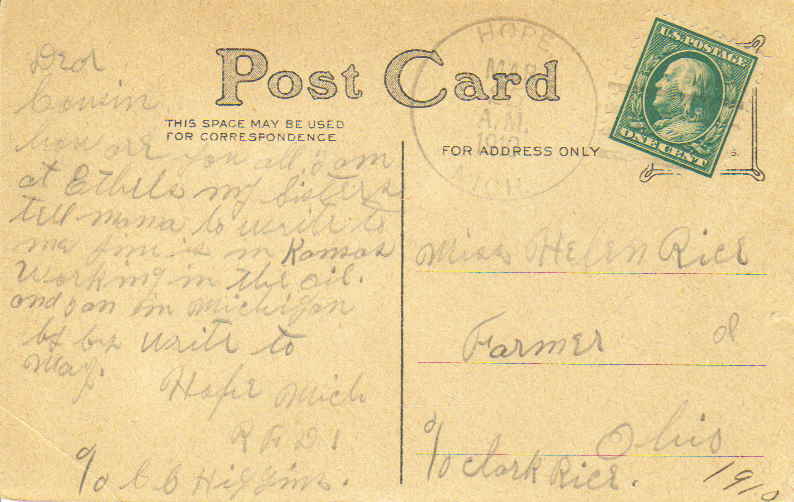 Post Card
THIS SPACE MAY BE USED
FOR CORRESPONDENCE
FOR ADDRESS ONLY
HOPE
MAR
A.M.
1910
MICH.
U.S. POSTAGE
ONE CENT
Dear
Cousin
how are you all I am
at Ethels my Sisters
tell mama to write to
me is in Kansas
Working in the oil.
and I am in Michigan
by by write to
May.
Hope Mich
R F D 1
c/o C C Higgins.
Miss Helen Rice
Farmer
Ohio
c/o Clark Rice.
1910